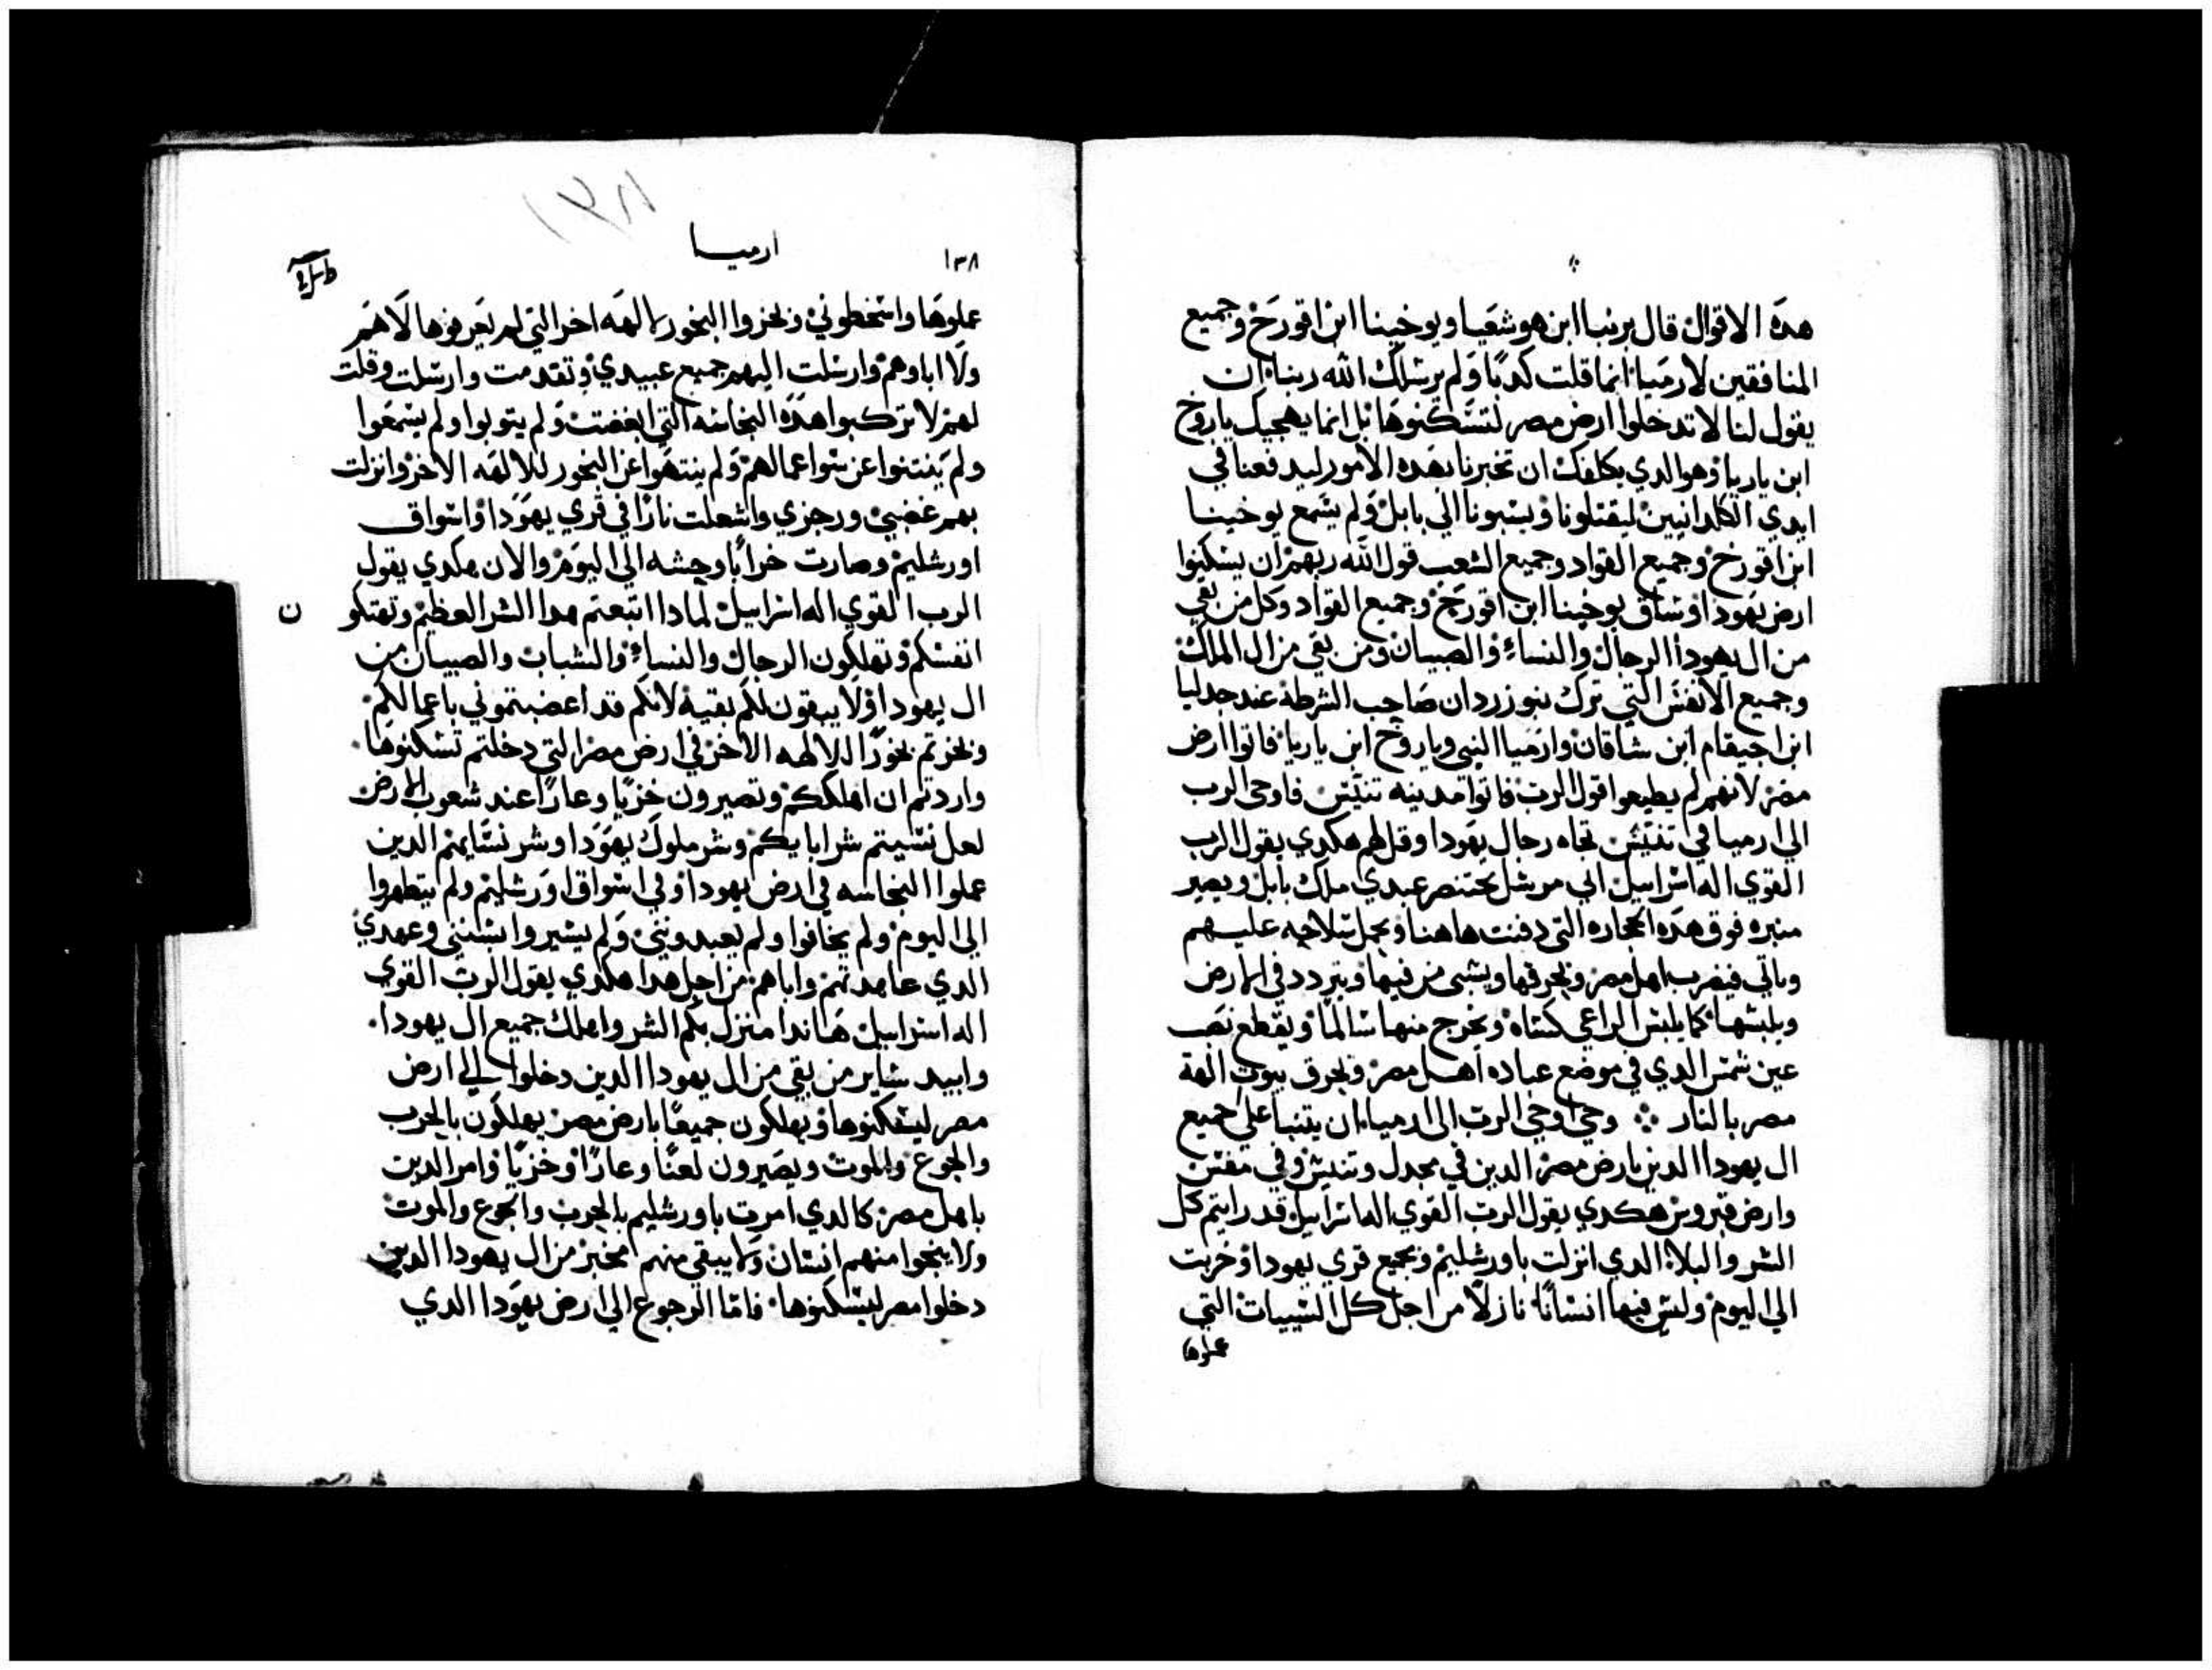 هده الاقوال قال برنبا ابن هوشعيا ويوخينا ابن اقورخ وجميع
المنافقين لارميا انما قلت كدبا ولم يرسلك الله ربنا ان
يقول لنا لا تدخلوا ارض مصر لتسكنوها بل انما يهجيك باروخ
ابن باريا وهو الدي يكلفك ان تخبرنا بهده الامور ليدفعنا في
ايدي الكلدانيين ليقتلونا ويسبونا الي بابل ولم يسمع يوخينا
ابن اقورخ وجميع القواد وجميع الشعب قول الله ربهم ان يسكنوا
ارض يهودا وساق يوخينا ابن اقورخ وجميع القواد وكل من بقي
من ال يهودا الرجال والنساء والصبيان ومن بقي من ال الملك
وجميع الانفس التي ترك نبوزردان صاحب الشرطة عند جدليا
ابن احيقام ابن شاقان وارميا النبي وباروخ ابن باريا فاتوا ارض
مصر لانهم لم يطيعوا قول الرب فاتوا مدينه تنتيس فاوحى الرب
الي ارميا في تنتيس تجاه رجال يهودا وقل لهم هكدي يقول الرب
القوي اله اسراييل اني مرسل بختنصر عبدي ملك بابل ويصير
منبره فوق هده الحجاره التي دفنت هاهنا ويجمل سلاحه عليهم
وياتي فيضرب اهل مصر ويحرقها ويسبى من فيها ويتردد في الارض
ويلبسها كما يلبس الراعي كساه ويخرج منها سالما ويقطع نصب
عين شمس الدي في موضع عباده اهل مصر ويحرق بيوت الهة
مصر بالنار وحي اوحي الرب الى ارميا ان يتنبا على جميع
ال يهودا الدين بارض مصر الدين في مجدل وتنيس وفي مفتس
وارض فتروس هكدي يقول الرب القوي اله اسراييل قد رايتم كل
الشر والبلاء الدي انزلت باورشليم وبجميع قري يهودا وخربت
الي اليوم وليس فيها انسانا نازلا من اجل كل السييات التي
عملوها
١٣٨
ارميا
١٣٨
عملوها واسخطوني وبخروا البخور لالهه اخر التي لم يعرفوها لا هم
ولا اباوهم وارسلت اليهم جميع عبيدي وتقدمت وارسلت وقلت
لهم لا تركبوا هده النجاسه التي ابغضت ولم يتوبوا ولم يسمعوا
ولم يتنتنوا عن سوا عمالهم ولم ينتهوا عن البخور للالهه الاخر وانزلت
بهم غضبي ورجزي واشعلت نارا في قري يهودا واسواق
اورشليم وصارت خرابا وحشه الي اليوم والان هكدي يقول
الرب القوي اله اسراييل لمادا اتبعتم هدا الشر العظيم وتهتكو ن
انفسكم وتهلكون الرجال والنساء والشباب والصبيان من
ال يهودا ولا يبقون لكم بقية لانكم قد اغضبتموني باعمالكم
وبخرتم بخورا للالهه الاخر في ارض مصر التي دخلتم تسكنوها
واردتم ان اهلككم وتصيرون خزيا وعارا عند شعوب الارض
لعل نسيتم شر ابايكم وشر ملوك يهودا وشر نسايهم الدين
عملوا النجاسه في ارض يهودا وفي اسواق اورشليم ولم يتطهروا
الي اليوم ولم يخافوا ولم يعبدونني ولم يسيروا بسنني وعهدي
الدي عاهدتهم واباهم من اجل هدا هكدي يقول الرب القوي
اله اسراييل هاندا منزل بكم الشر واهلك جميع ال يهودا
وابيد ساير من بقي من ال يهودا الدين دخلوا الي ارض
مصر ليسكنوها ويهلكون جميعا بارض مصر يهلكون بالحرب
والجوع والموت ويصيرون لعنا وعارا وخزيا وامر الدين
باهل مصر كالدي امرت باورشليم بالحرب والجوع والموت
ولا ينجوا منهم انسان ولا يبقي منهم مخبر من ال يهودا الدين
دخلوا مصر ليسكنوها فاما الرجوع الي ارض يهودا الدي